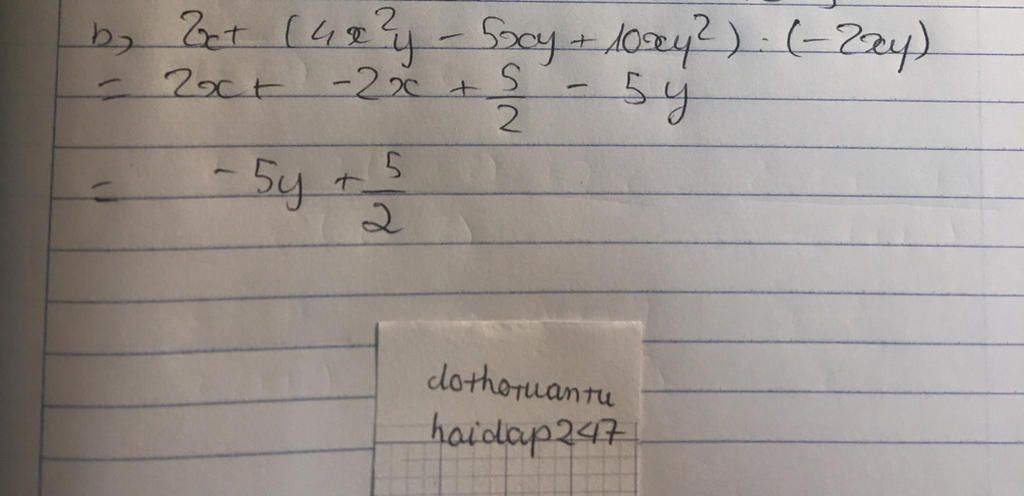 b, 2x + (4x²y - 5xy + 10xy²) : (-2xy)
= 2x + -2x + 5/2 - 5y
= -5y + 5/2
dothotuantu
hoidap247